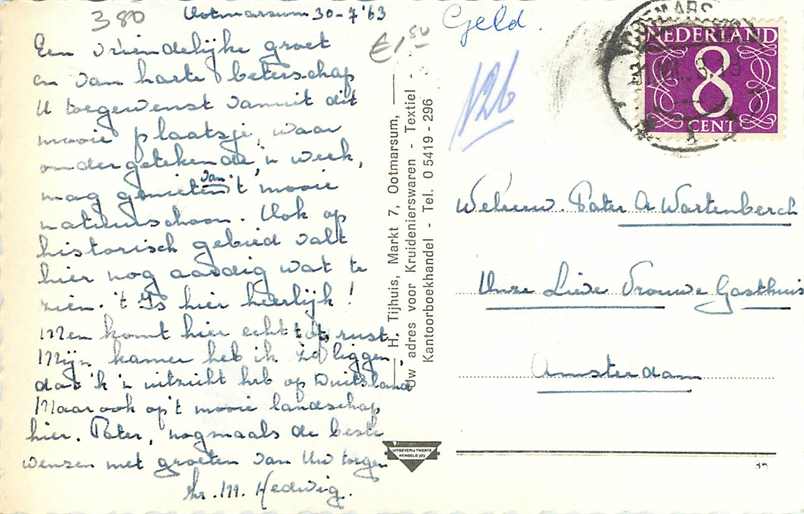 380
Ootmarsum 30-7-'63
Een vriendelijke groet
en van harte beterschap
U toegewenst vanuit dit
mooie plaatsje, waar
ondergetekende 'n week,
mag genieten van 't mooie
natuurschoon. Ook op
historisch gebied valt
hier nog aardig wat te
zien. 't Is hier heerlijk!
Men komt hier echt tot rust
Mijn kamer heb ik zo liggen,
dat 'k 'n uitzicht heb op Duitsland
Maar ook op 't mooie landschap
hier. Pater, nogmaals de beste
wensen met groeten van Uw toegen
Zr. M. Hedwig.
€1,50
Geld.
126
H. Tijhuis, Markt 7, Ootmarsum,
Uw adres voor Kruidenierswaren - Textiel -
Kantoorboekhandel - Tel. 0 5419 - 296
UITGEVERIJ TWENTE
HENGELO (O)
NEDERLAND
8
CENT
Weleerw. Pater A Wartenberch
Onze Lieve Vrouwe Gasthuis
Amsterdam